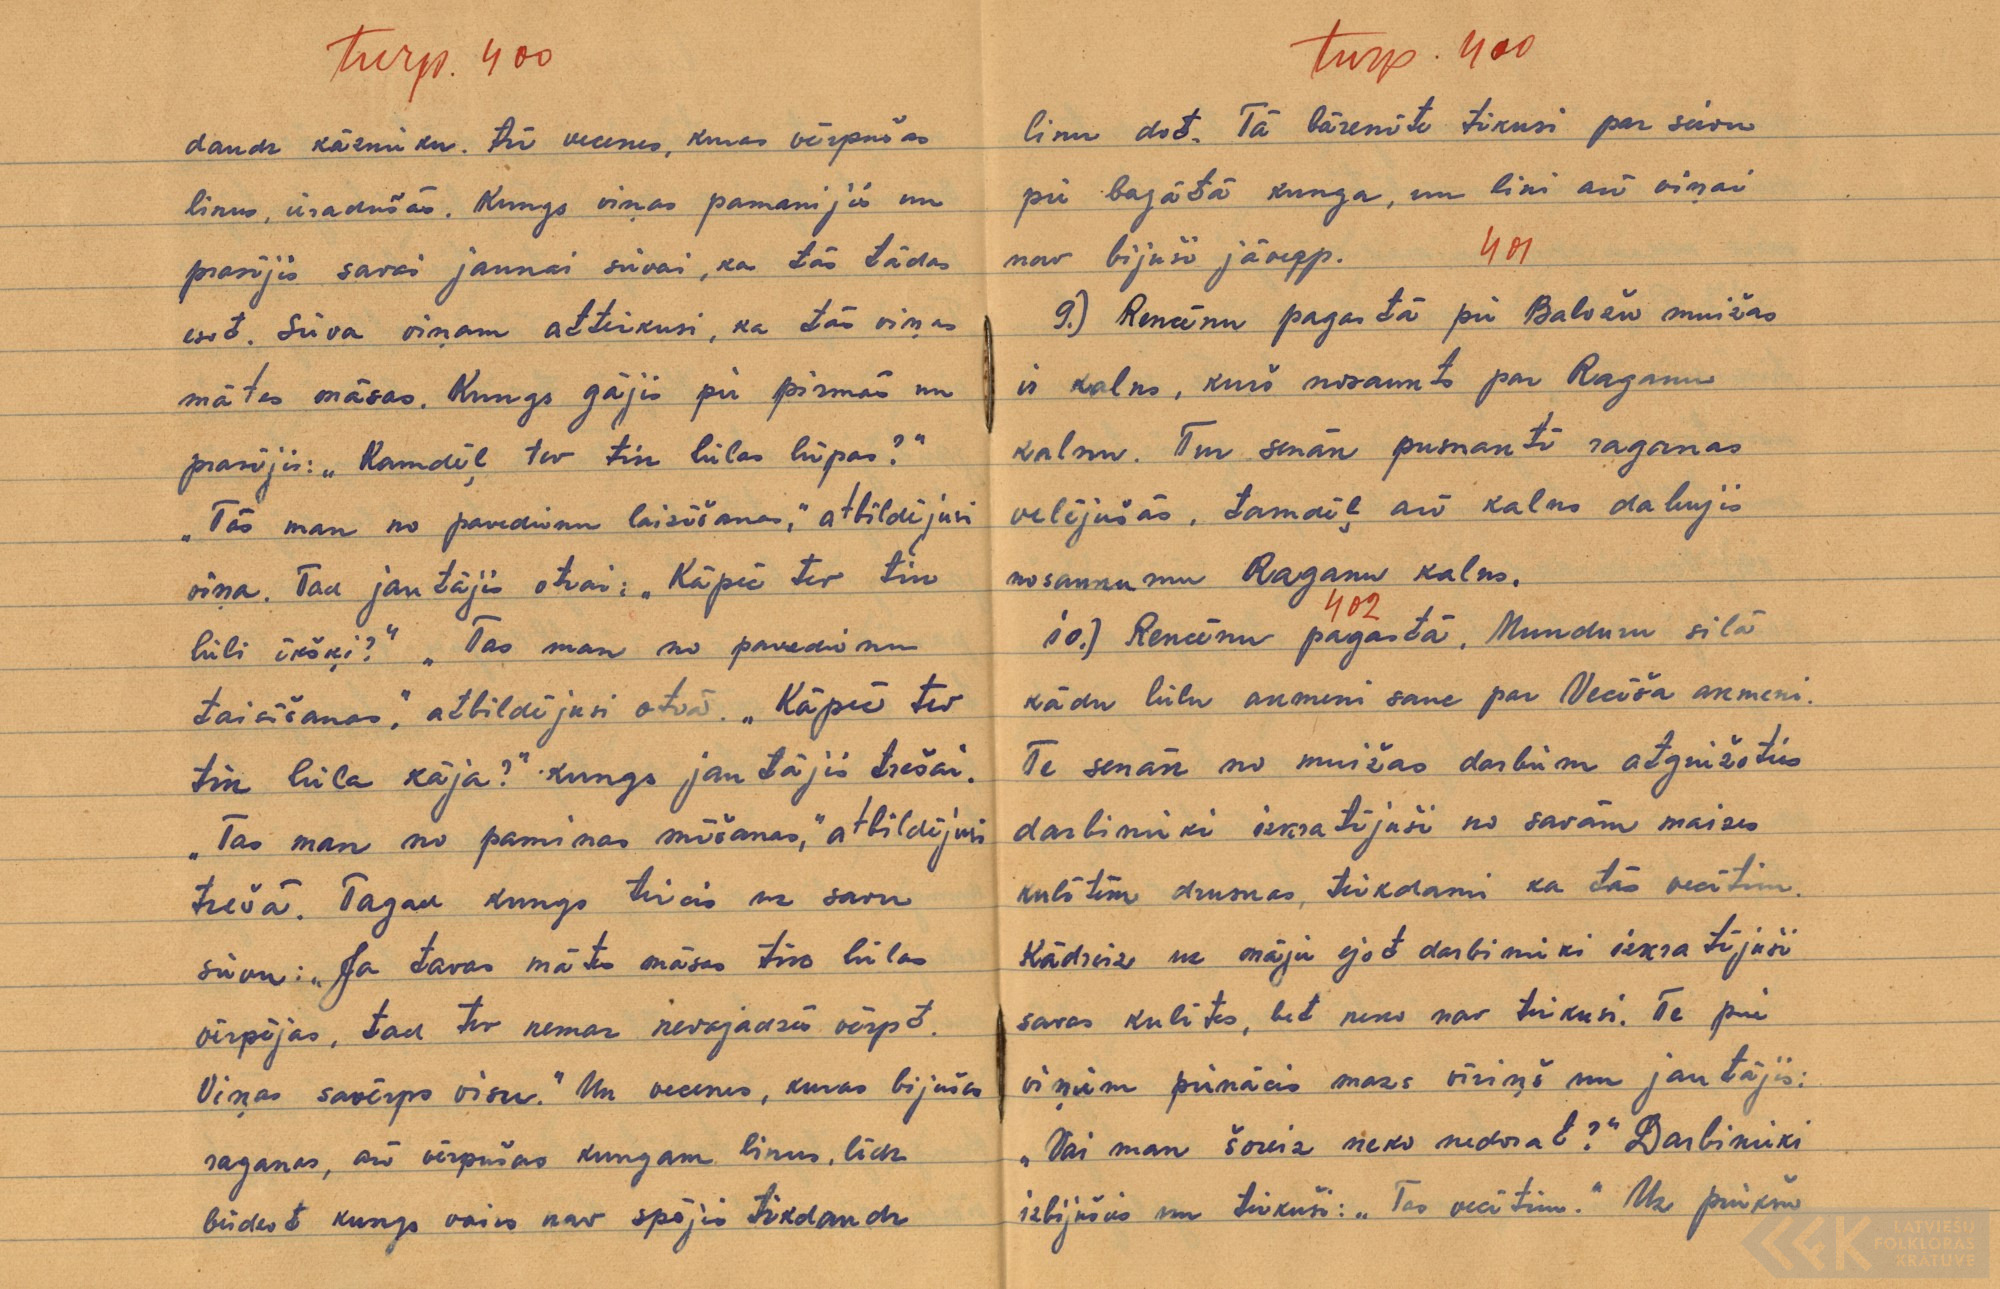 turp. 400
daudz kāzinieku. Trīs vecenes, kuras vērpušas
linus, ieradušās. Kungs viņas pamanījis un
prasījis savai jaunai sievai, kas tās tādas
esot. Sieva viņam atteikusi, ka tās viņas
mātes māsas. Kungs gājis pie pirmās un
prasījis: „Kamdēļ tev tik lielas lūpas?"
„Tās man no pavedienu laizīšanas," atbildējusi
viņa. Tad jautājis otrai: „Kāpēc tev tik
lieli īkšķi?" „Tas man no pavedienu
taisīšanas," atbildējusi otrā. „Kāpēc tev
tik liela kāja?" kungs jautājis trešai.
„Tas man no paminas mīšanas," atbildējusi
trešā. Tagad kungs teicis uz savu
sievu: „Ja tavas mātes māsas tiks lielas
vērpējas, tad tev nemaz nevajadzēs vērpt.
Viņas savērps visu." Un vecenes, kuras bijušas
raganas, arī vērpušas kungam linus, līdz
beidzot kungs vairs nav spējis tikdaudz
turp. 400
linu dot. Tā bārenīte tikusi par sievu
pie bagātā kunga, un lini arī viņai
nav bijuši jāvērp.
401
9.) Rencēnu pagastā pie Baložu muižas
ir kalns, kurš nosaukts par Raganu
kalnu. Tur senāk pusnaktī raganas
velējušās, tamdēļ arī kalns dabujis
nosaukumu Raganu kalns.
402
10.) Rencēnu pagastā, Munduru silā
kādu lielu akmeni sauc par Vecīša akmeni.
Te senāk no muižas darbiem atgriežoties
darbinieki izkratījuši no savām maizes
kulītēm druskas, teikdami ka tās vecītim.
Kādreiz uz māju ejot darbinieki izkratījuši
savas kulītes, bet neko nav teikuši. Te pie
viņiem pienācis mazs vīriņš un jautājis:
„Vai man šoreiz neko nedosat?" Darbinieki
izbijušies un teikuši: „Tas vecītim." Uz priekšu
LATVIEŠU
FOLKLORAS
KRĀTUVE